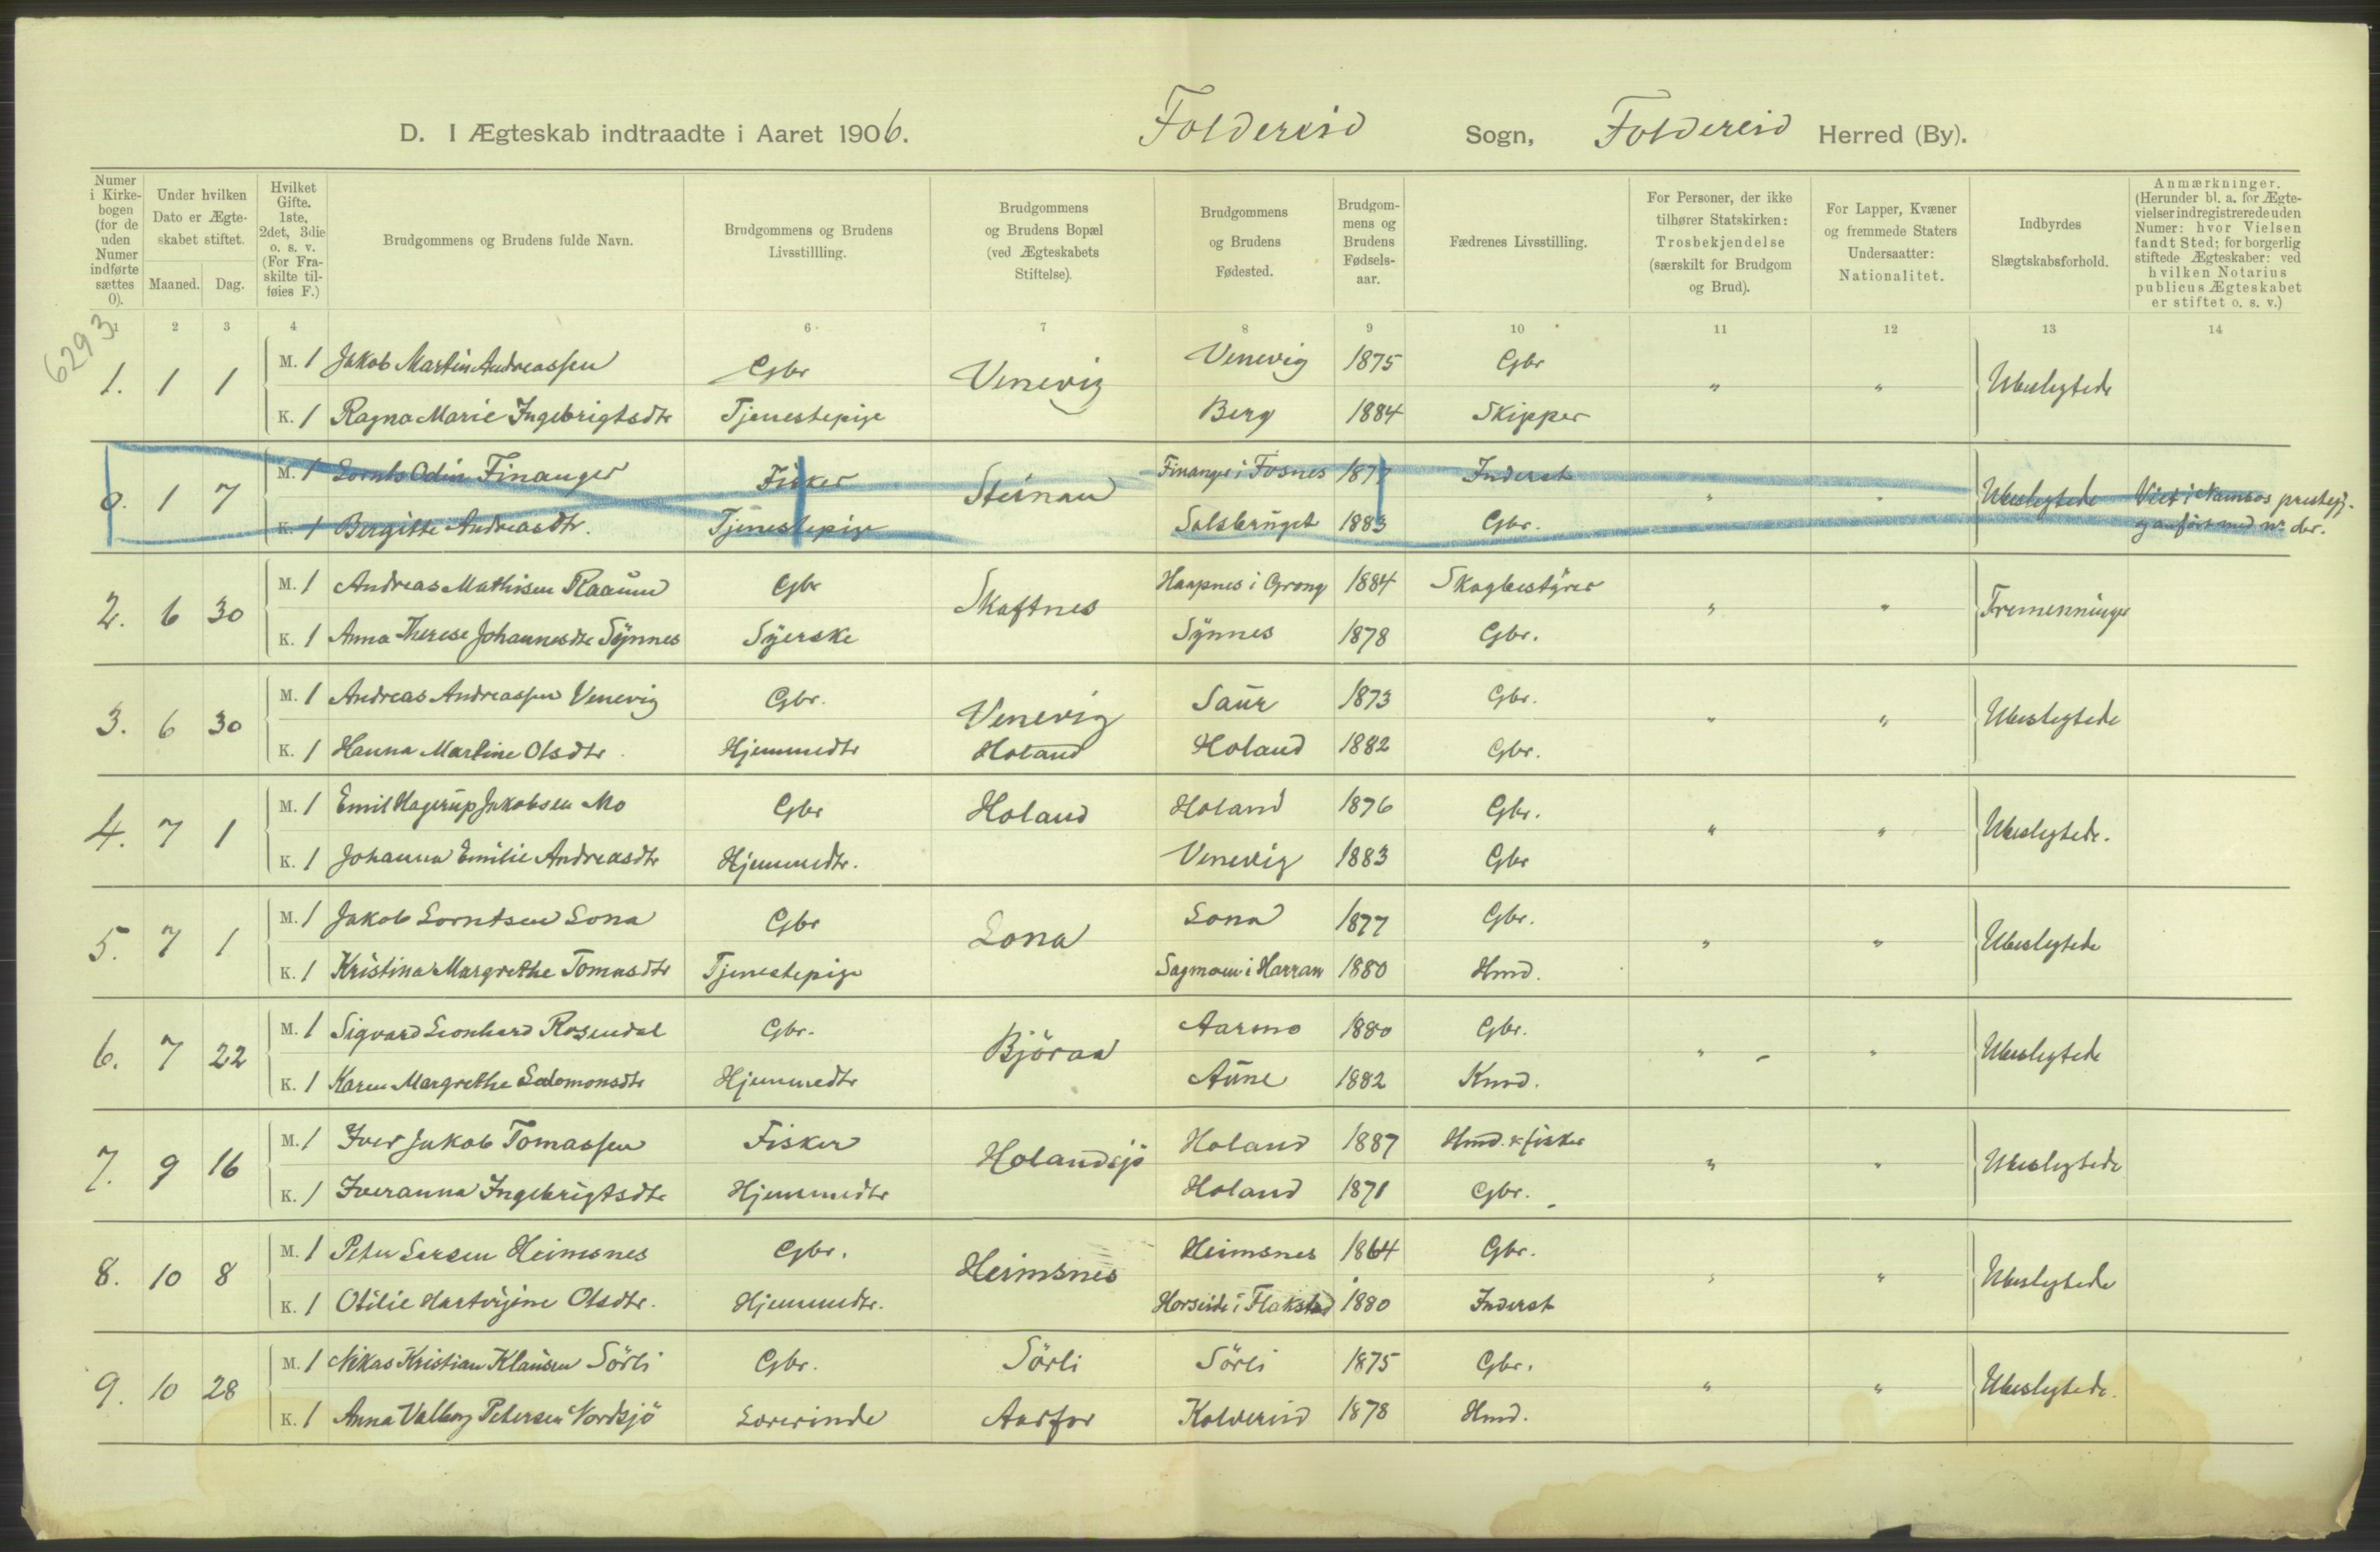 D. I Ægteskab indtraadte i Aaret 1906. Foldereid Sogn, Foldereid Herred (By).
Numer i Kirkebogen (for de uden Numer indførte sættes 0).
Under hvilken Dato er Ægteskabet stiftet.
Maaned. Dag.
Hvilket Gifte. 1ste, 2det, 3die o. s. v. (For Fraskilte tilføies F.)
Brudgommens og Brudens fulde Navn.
Brudgommens og Brudens Livsstillling.
Brudgommens og Brudens Bopæl (ved Ægteskabets Stiftelse).
Brudgommens og Brudens Fødested.
Brudgommens og Brudens Fødselsaar.
Fædrenes Livsstilling.
For Personer, der ikke tilhører Statskirken: Trosbekjendelse (særskilt for Brudgom og Brud).
For Lapper, Kvæner og fremmede Staters Undersaatter: Nationalitet.
Indbyrdes Slægtskabsforhold.
Anmærkninger. (Herunder bl. a. for Ægtevielser indregistrerede uden Numer: hvor Vielsen fandt Sted; for borgerlig stiftede Ægteskaber: ved hvilken Notarius publicus Ægteskabet er stiftet o. s. v.)
1 2 3 4 6 7 8 9 10 11 12 13 14
6293
1. 1 1 M. 1 Jakob Martin Andreassen Gbr Venevig Venevig 1875 Gbr " " Ubeslegtede
K. 1 Ragna Marie Ingebrigtsdtr Tjenestepige Berg 1884 Skipper
0. 1 7 M. 1 Lornts Odin Finanger Fisker Steinan Finanger i Fosnes 1877 Inderst " " Ubeslegtede Viet i Namsos prestegj.
K. 1 Bergitte Andreasdtr. Tjenestepige Salsbruget 1883 Gbr. og anført med nr der.
2. 6 30 M. 1 Andreas Mathisen Raaum Gbr Skaftnes i Grong 1884 Skogbestyrer " " Tremenninger
K. 1 Anna Therese Johannesdtr Synnes Syerske Synnes 1878 Gbr.
3. 6 30 M. 1 Andreas Andreassen Venevig Gbr. Venevig Saur 1873 Gbr. " " Ubeslegtede
K. 1 Hanna Martine Olsdtr Hjemmedtr Holand Holand 1882 Gbr.
4. 7 1 M. 1 Emil Hagerup Jakobsen Mo Gbr Holand Holand 1876 Gbr. " " Ubeslegtede.
K. 1 Johanna Emilie Andreasdtr Hjemmedtr. Venevig 1883 Gbr
5. 7 1 M. 1 Jakob Lorntsen Lona Gbr Lona Lona 1877 Gbr. " " Ubeslegtede
K. 1 Kristina Margrethe Tomasdtr Tjenestepige Sagmoen i Harran 1880 Hmd.
6. 7 22 M. 1 Sigvard Leonhard Rosendal Gbr. Björaa Aarmo 1880 Gbr. " " Ubeslegtede
K. 1 Karen Margrethe Salomonsdtr Hjemmedtr Aune 1882 Kmd.
7. 9 16 M. 1 Iver Jakob Tomassen Fisker Holandsjö Holand 1887 Hmd. & fisker " " Ubeslegtede
K. 1 Iveranna Ingebrigtsdtr Hjemmedtr Holand 1871 Gbr.
8. 10 8 M. 1 Peter Larsen Heimsnes Gbr. Heimsnes Heimsnes 1864 Gbr. " " Ubeslegtede
K. 1 Otilie Hartvigine Olsdtr. Hjemmedtr. i Flakstad 1880 Inderst
9. 10 28 M. 1 Nikas Kristian Klausen Sörli Gbr. Sörli Sörli 1875 Gbr. " " Ubeslegtede.
K. 1 Anna Valborg Petersen Nordsjö Lærerinde Aarfor Kolvereid 1878 Hmd.